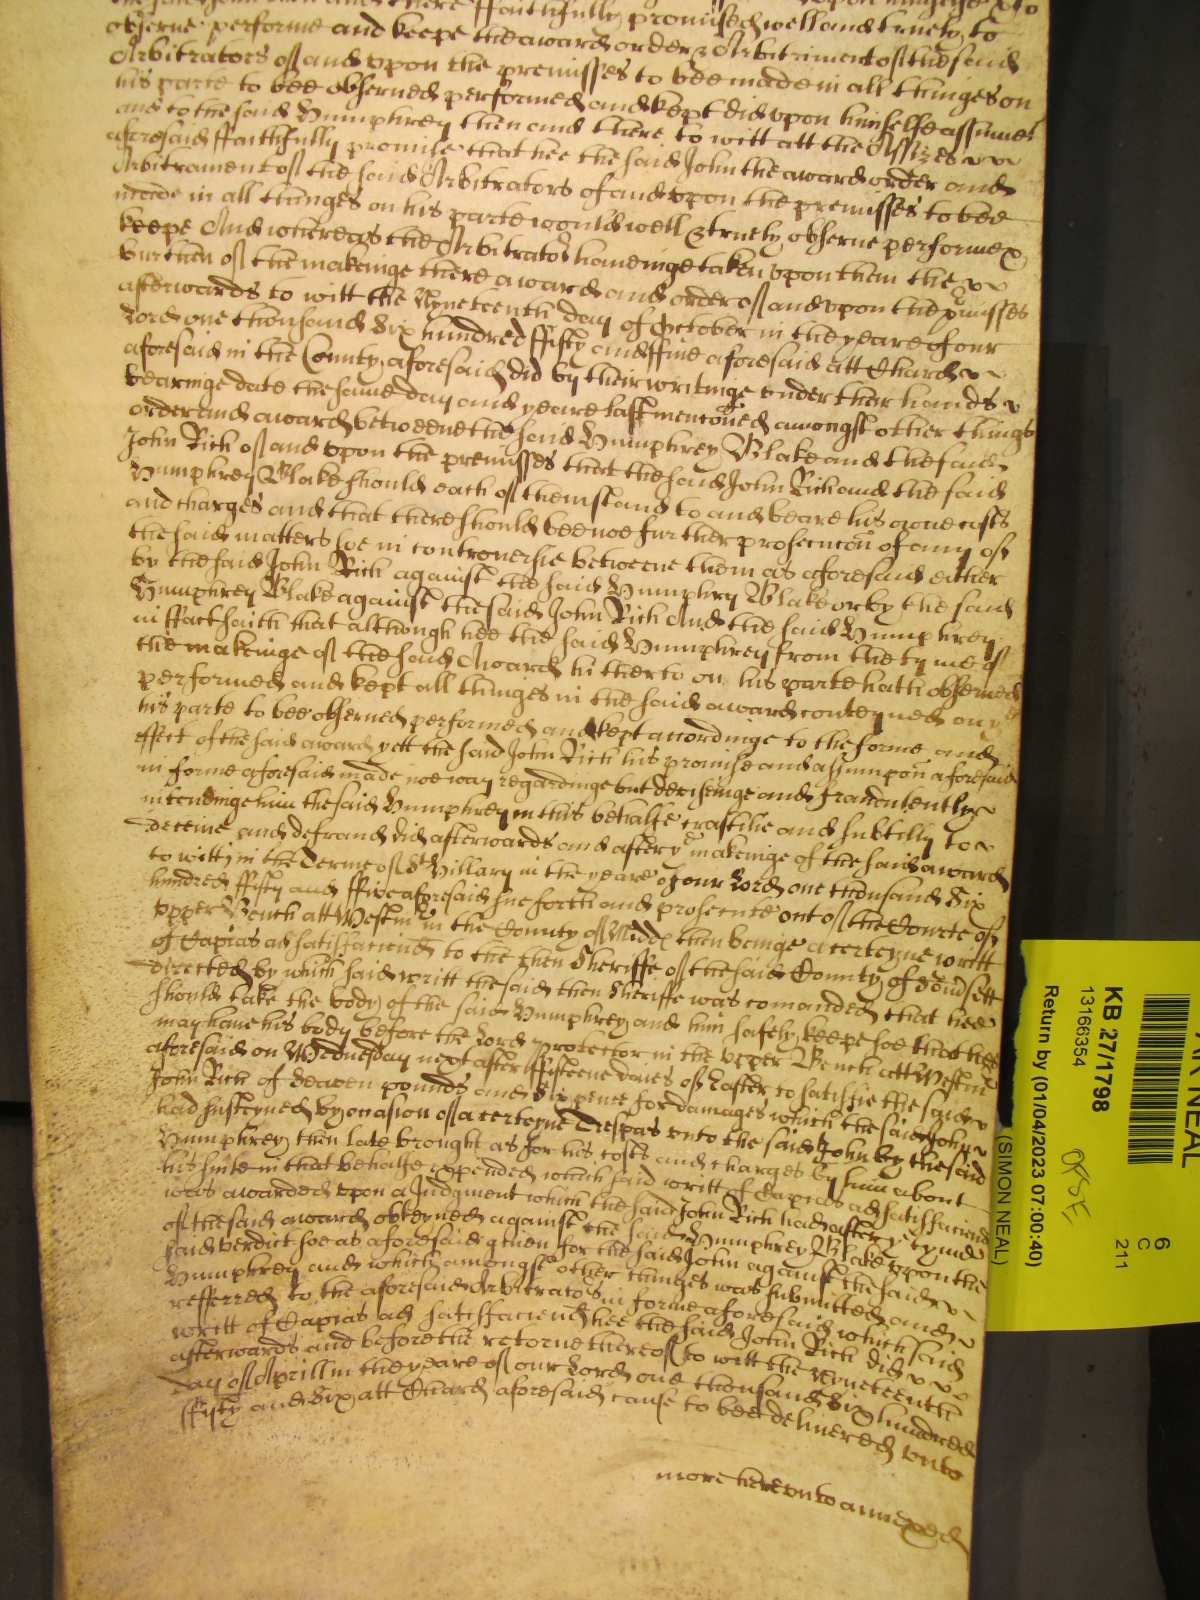 the said John then and there ffaithfully promised well and truely to
observe performe and keepe the award order & Arbitriment of the said
Arbitrators of and vpon the premisses to bee made in all thinges on
his parte to bee observed performed and kept did vpon himselfe assume
and to the said Humphrey then and there to witt att the Assizes
aforesaid ffaithfully promise that hee the said John the award order and
Arbitrament of the said Arbitrators of and vpon the premisses to bee
made in all thinges on his parte would well & truely observe performe &
keepe And whereas the Arbitrators haveinge taken vpon them the
burthen of the makeinge there award and order of and vpon the pmisses
afterwards to witt the Nyneteenth day of October in the yeare of our
Lord one thousand Six hundred ffifty and ffive aforesaid att Chard
aforesaid in the County aforesaid did by their writinge vnder their hands
bearinge date the same day and yeare last mentoned amongst other things
order and award betweene the said Humphrey Blake and the said
John Rich of and vpon the premisses that the said John Rich and the said
Humphrey Blake should each of them stand to and beare his owne costs
and charges and that there should bee noe further prosecucon of any of
the said matters soe in controversie betweene them as aforesaid either
by the said John Rich against the said Humphry Blake or by the said
Humphrey Blake against the said John Rich And the said Humphrey
in ffact saith that although hee the said Humphrey from the tyme of
the makeinge of the said Award hitherto on his parte hath observed
performed and kept all thinges in the said award conteyned on
his parte to bee observed performed and kept accordinge to the forme and
effect of the said award yett the said John Rich his promise and assumpcon aforesaid
in forme aforesaid made noe way regardinge but deviseinge and fraudulently
intendinge him the said Humphrey in this behalfe craftilie and subtilly to
deceive and defraud did afterwards and after ye makeinge of the said award
to witt in the Terme of St Hillary in the yeare of our Lord one thousand Six
hundred ffifty and ffive aforesaid sue forth and prosecute out of the Courte of
vpper Bench att Westmr in the County of Midd then beinge a certeyne writt
of Capias ad satisfaciend to the then Sheriffe of the said County of Somsett
directed by which said writt the said then Sheriffe was comanded that hee
should take the body of the said Humphrey and him safely keepe soe that hee
may have his body before the Lord protector in the vpper Bench att Westmr
aforesaid on Wednesday next after ffifteene daies of Easter to satisfie the said
John Rich of Seaven pounds and Sixpence for damages which the said John
had susteyned by occasion of a certeyne Trespas vnto the said John by the said
Humphrey then late brought as for his costs and charges by him about
his suite in that behalfe expended which said writt of Capias ad satisfaciend
was awarded vpon a Judgment which the said John Rich had after ye tyme
of the said award obteyned against the said Humphrey Blake vpon the
said verdict soe as aforesaid given for the said John against the said
Humphrey and which amongst other thinges was submitted and
refferred to the aforesaid Arbitrators in forme aforesaid which said
writt of Capias ad satisfaciend hee the said John Rich did
afterwards and before the retorne thereof to witt the Nyneteenth
day of Aprill in the yeare of our Lord one thousand Six hundred
ffifty and Six att Chard aforesaid cause to bee delivered vnto
more herevnto annexed
KB 27/1798
13166354
Return by (01/04/2023 07:00:40)
(SIMON NEAL)
6
C
211